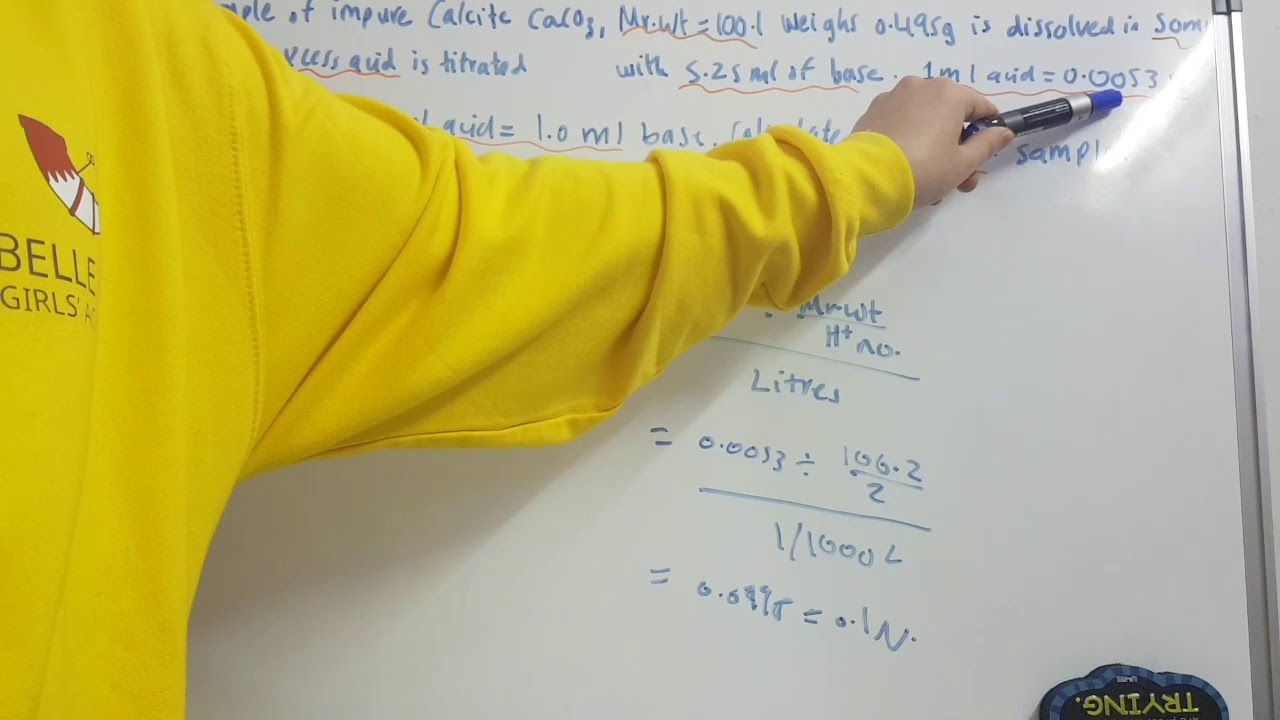 of impure Calcite CaCO3, Mr.wt=100.1 weighs 0.495g is dissolved in Som
excess acid is titrated with 5.25 ml of base. 1ml acid = 0.0053
acid = 1.0 ml base. Calculate sample
Mr.wt
H+ no.
Litres
= 0.0053 ÷ 106.2
2
1/1000L
= = 0.1N.
BELLE
GIRLS'
TRYING.